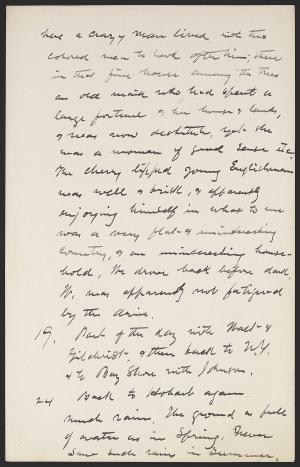 here a crazy man lived with two
colored men to look after him; there
in that fine house among the trees
an old maid who had spent a
large fortune on her house & lands,
& was now destitute, yet she
was a woman of good sense etc.
The cherry lipped young Englishman
was well & brisk, & apparently
enjoying himself in what to me
was a very flat & uninteresting
country, & an uninteresting house-
hold. We drove back before dark,
W. was apparently not fatigued
by the drive.
19. Part of the day with Walt &
Gilchrist, & then back to N.Y.
& to Bay Shore with Johnson.
24 Back to Hobart again.
Much rain. The ground as full
of water as in Spring. Never
saw such rains in Summer.